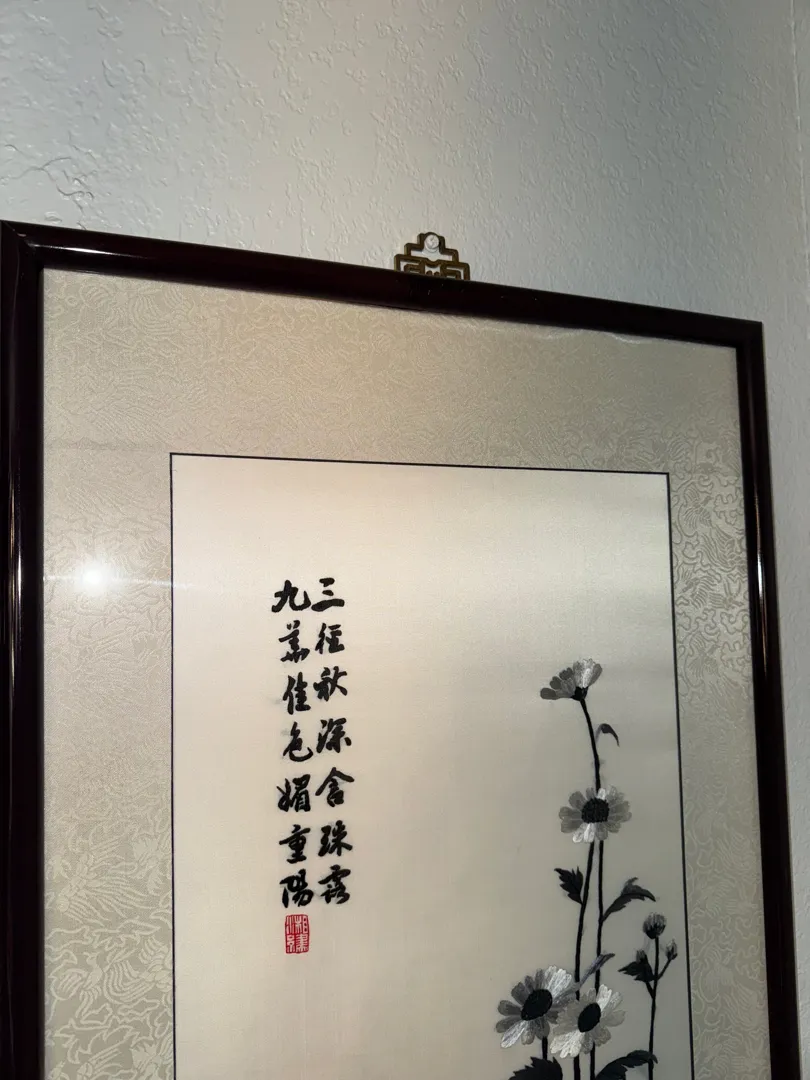 三徑秋深含珠露
九華佳色媚重陽